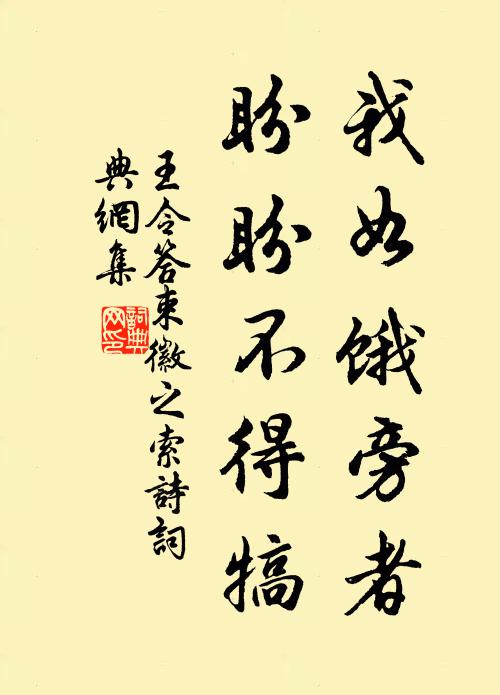 我如餓旁者
盼盼不得犒
王令答束徽之索詩詞
典網集
詞典
网印